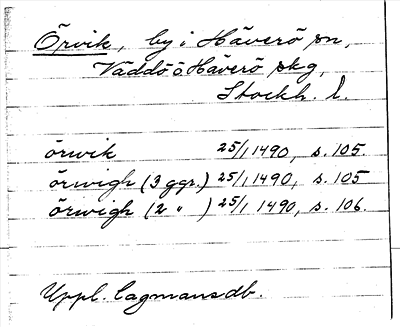 Örvik, by i Häverö sn,
Väddö o Häverö skg,
Stockh. l.
örwik 25/1 1490, s. 105.
örwigh (3 ggr.) 25/1 1490, s. 105
örwigh (2 " ) 25/1 1490, s. 106.
Uppl. lagmansdb.